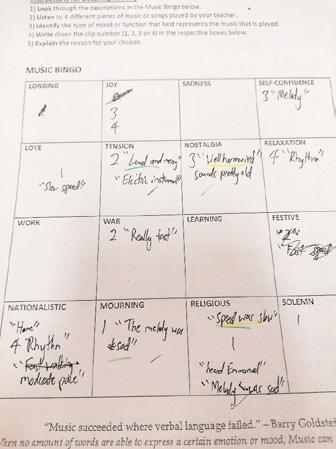 1) Look through the descriptions in the Music Bingo below.
2) Listen to 4 different pieces of music or songs played by your teacher.
3) Identify the type of mood or function that best represents the music that is played.
4) Write down the clip number (1, 2, 3 or 4) in the respective boxes below.
5) Explain the reason for your choices.
MUSIC BINGO
LONGING
JOY
3
4
SADNESS
SELF-CONFIDENCE
3 "Melody"
LOVE
1
"Slow speed"
TENSION
2 "Loud and noisy"
"Electric instrument"
NOSTALGIA
3 "Well harmonised"
sounds pretty old
RELAXATION
4 "Rhythm"
WORK
WAR
2 "Really fast"
LEARNING
FESTIVE
NATIONALISTIC
"Home"
4 "Rhythm"
moderate pale"
MOURNING
1 "The melody was
sad"
RELIGIOUS
"Speed was slow"
1
"heard Emmanuel"
"Melody was sad"
SOLEMN
1
"Music succeeded where verbal language failed." – Barry Goldste
When no amount of words are able to express a certain emotion or mood, Music can